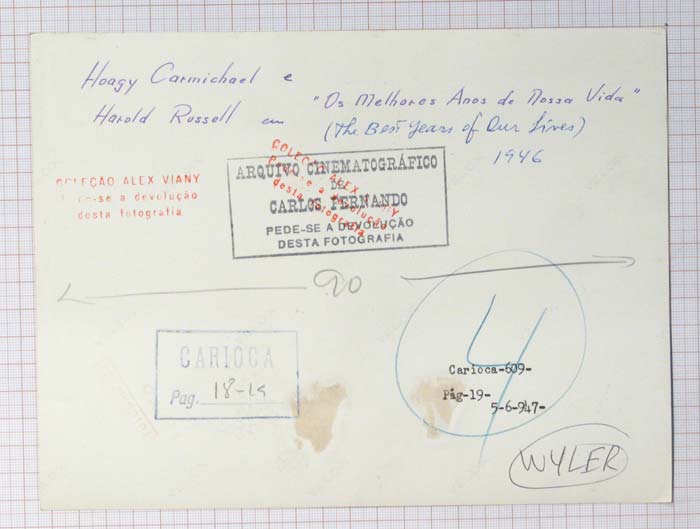 Hoagy Carmichael e
Harold Russell em "Os Melhores Anos de Nossa Vida"
(The Best Years of Our Lives)
1946
COLEÇÃO ALEX VIANY
Pede-se a devolução
desta fotografia
ARQUIVO CINEMATOGRÁFICO
DE
CARLOS FERNANDO
PEDE-SE A DEVOLUÇÃO
DESTA FOTOGRAFIA
COLEÇÃO ALEX VIANY
Pede-se a devolução
desta fotografia
20
CARIOCA
Pag. 18-19
4
Carioca-609-
Pág-19-
5-6-947-
WYLER